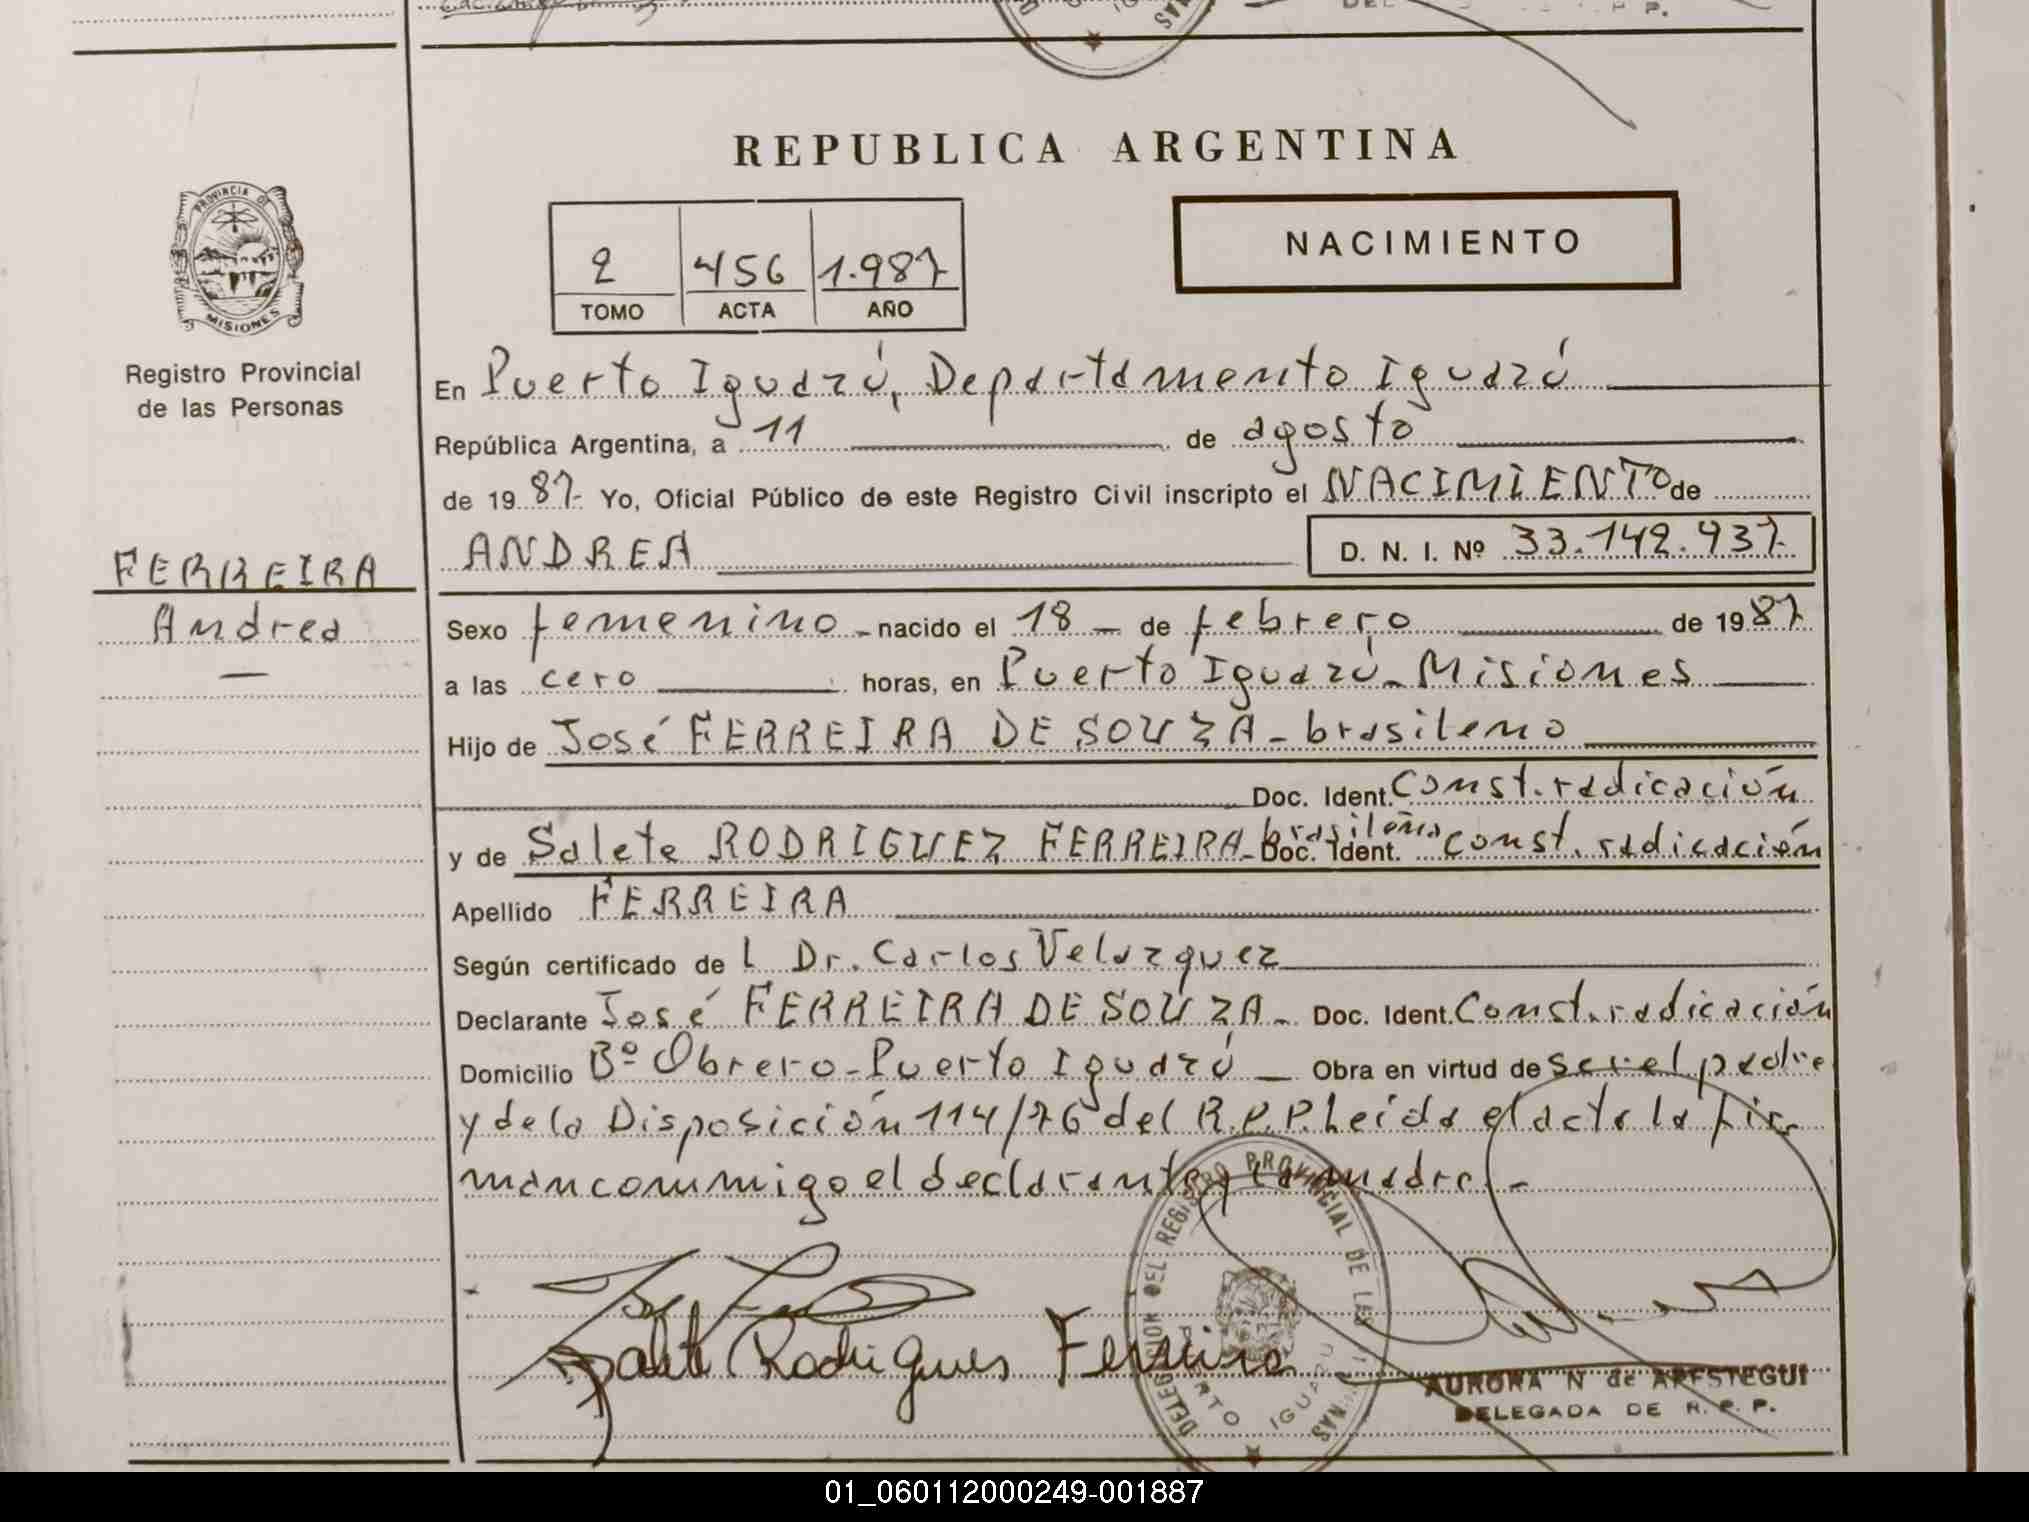 REPUBLICA ARGENTINA
PROVINCIA DE
MISIONES
Registro Provincial
de las Personas
2 456 1.987
TOMO ACTA AÑO
NACIMIENTO
En Puerto Iguazú, Departamento Iguazú
República Argentina, a 11 de agosto
de 19 87 Yo, Oficial Público de este Registro Civil inscripto el NACIMIENTO de
FERREIRA
Andrea
ANDREA D. N. I. Nº 33.142.937
Sexo femenino - nacido el 18 - de febrero de 19 87
a las cero horas, en Puerto Iguazú - Misiones
Hijo de José FERREIRA DE SOUZA - brasileno
Doc. Ident. Const. radicación
y de Salete RODRIGUEZ FERREIRA - brasileña Doc. Ident. const. radicación
Apellido FERREIRA
Según certificado de l Dr. Carlos Velazquez
Declarante José FERREIRA DE SOUZA - Doc. Ident. Const. radicación
Domicilio Bº Obrero - Puerto Iguazú - Obra en virtud de ser el padre
y de la Disposición 114/76 del R.P.P. Leída el acta la fir
man conmigo el declarante y la madre. -
Salete Rodrigues Ferreira
DELEGACION DEL REGISTRO PROVINCIAL DE LAS PERSONAS
PUERTO IGUAZU
AURORA N de ARESTEGUI
DELEGADA DE R. P. P.
01_060112000249-001887